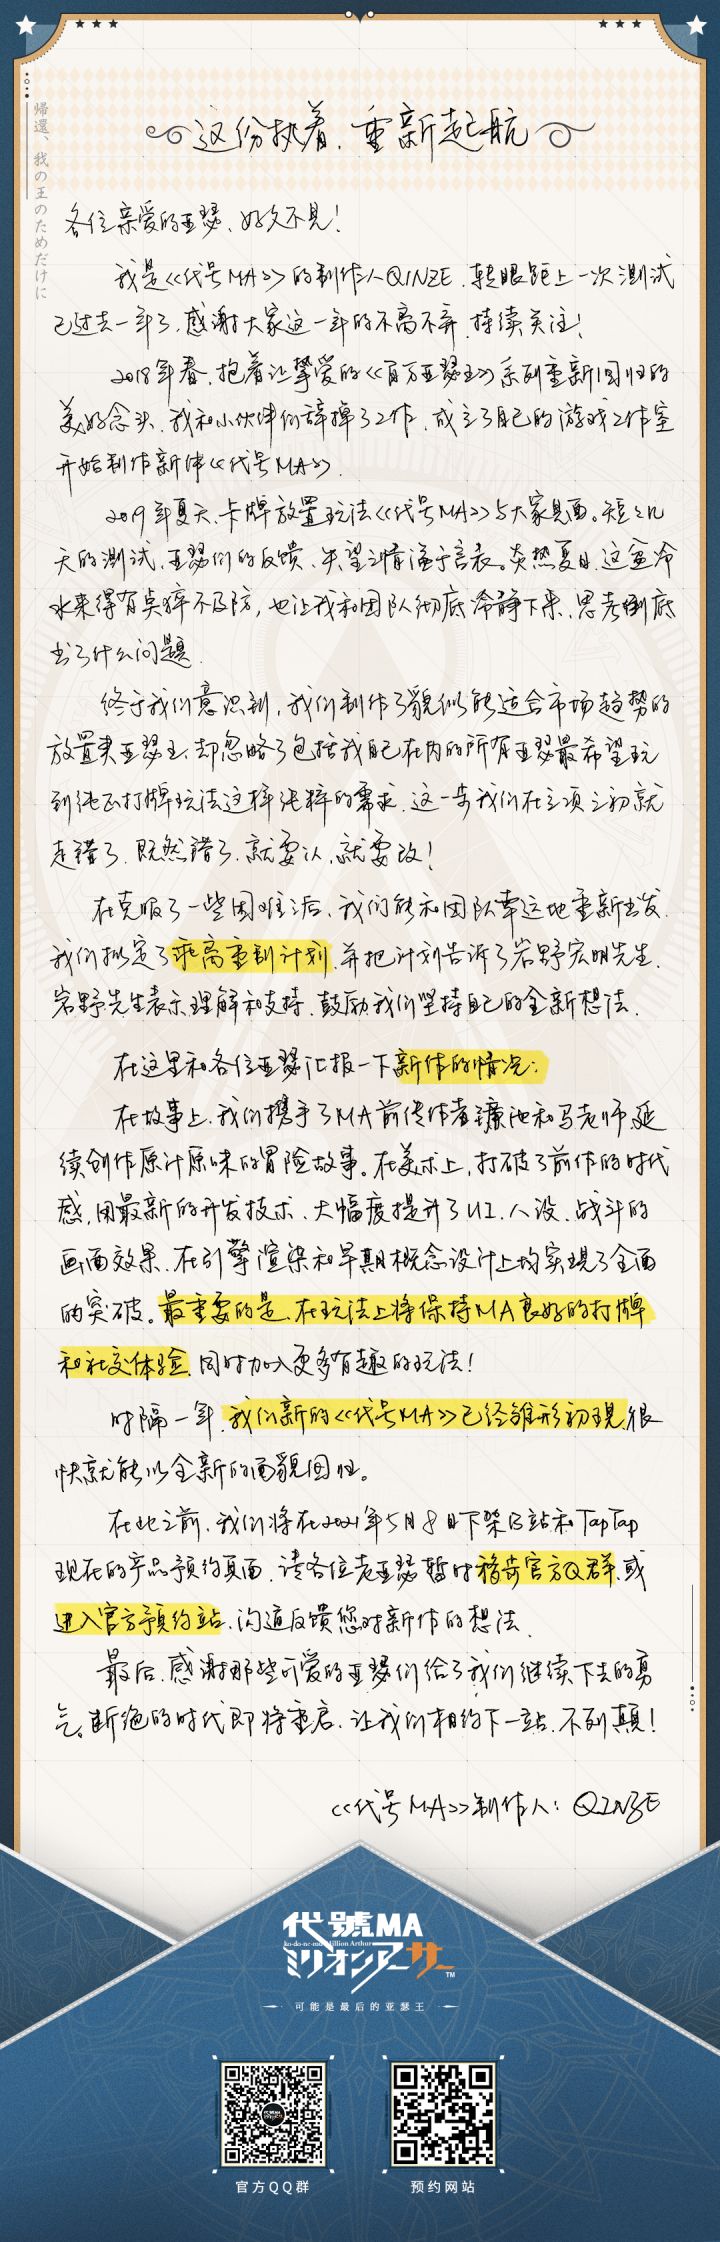 帰還、我の王のためだけに
这份执着，重新起航
各位亲爱的亚瑟、好久不见！
我是《代号MA》的制作人QINZE，转眼距上一次测试
已过去一年了，感谢大家这一年的不离不弃，持续关注！
2018年春，抱着让挚爱的《百万亚瑟王》系列重新回归的
美好念头，我和小伙伴们辞掉了工作，成立了自己的游戏工作室
开始制作新作《代号MA》.
2019年夏天、卡牌放置玩法《代号MA》与大家见面。短短几
天的测试，亚瑟们的反馈、失望之情溢于言表。炎热夏日，这盆冷
水来得有点猝不及防，也让我和团队彻底冷静下来、思考到底
出了什么问题.
终于我们意识到，我们制作了貌似能适合市场趋势的
放置类亚瑟王、却忽略了包括我自己在内的所有亚瑟最希望玩
到纯正打牌玩法这样纯粹的需求，这一步我们在立项之初就
走错了，既然错了，就要认，就要改！
在克服了一些困难之后、我们能和团队幸运地重新出发.
我们拟定了乘离重制计划，并把计划告诉了岩野宏明先生、
岩野先生表示理解和支持、鼓励我们坚持自己的全新想法.
在这里和各位亚瑟汇报一下新作的情况：
在故事上，我们携手了MA前传作者镰池和马老师，延
续创作原汁原味的冒险故事。在美术上，打破了前作的时代
感，用最新的开发技术、大幅度提升了UI、人设、战斗的
画面效果、在引擎渲染和早期概念设计上均实现了全面
的突破。最重要的是、在玩法上将保持MA良好的打牌
和社交体验，同时加入更多有趣的玩法！
时隔一年，我们新的《代号MA》已经雏形初现，很
快就能以全新的面貌回归。
在此之前，我们将在2021年5月8日下架B站和TapTap
现在的产品预约页面，请各位老亚瑟暂时移步官方Q群，或
进入官方预约站，沟通反馈您对新作的想法.
最后，感谢那些可爱的亚瑟们给了我们继续下去的勇
气。断绝的时代即将重启，让我们相约下一站，不列颠！
《代号MA》制作人：QINZE
代號MA
ko-do-ne-mu Million Arthur
ミリオンアーサー TM
可能是最后的亚瑟王
官方QQ群
预约网站